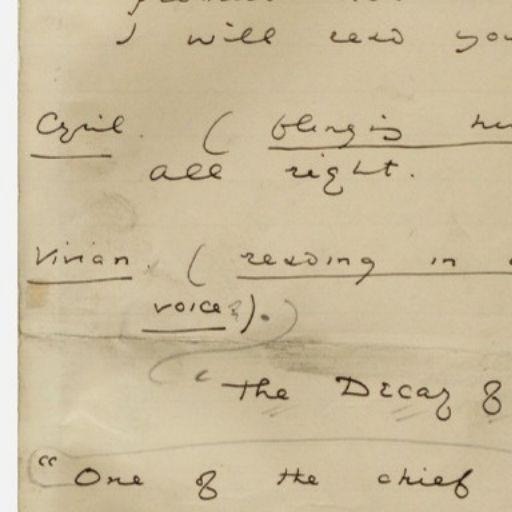 I will read you
Cyril. (
all right.
Vivian. (reading in a
voice).
"The Decay of
"One of the chief